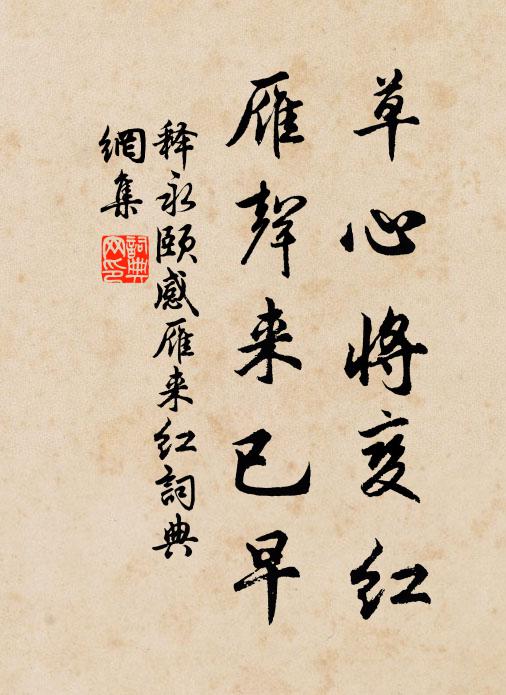 草心将变红
雁聲来已早
释永颐感雁来红詞典
網集
詞典
网印